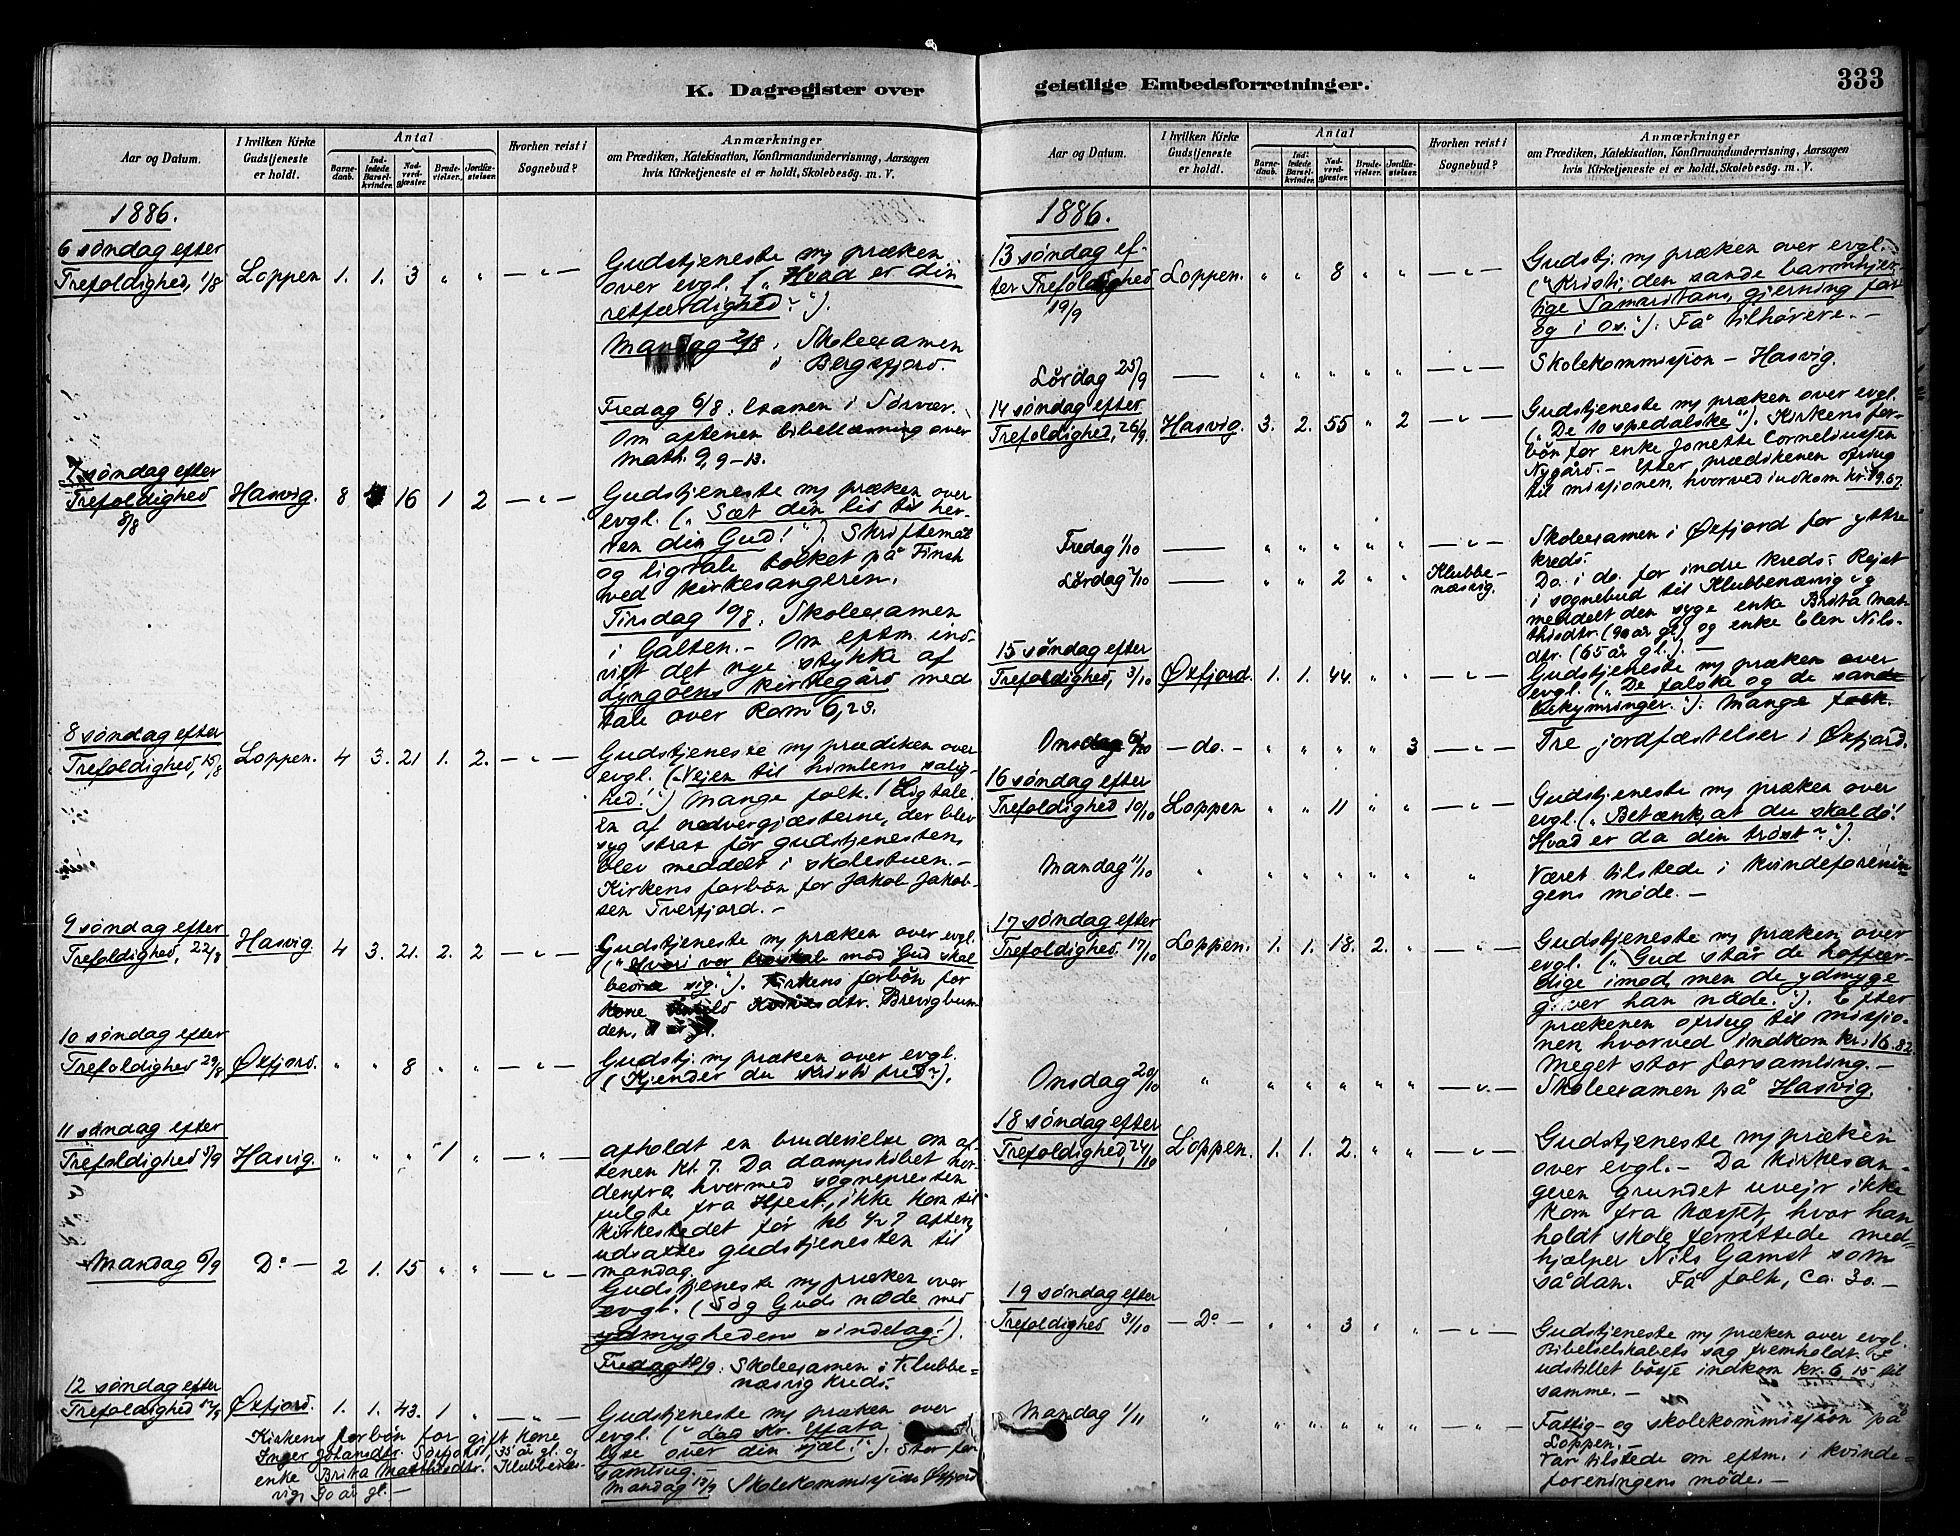 K. Dagregister over
Aar og Datum.
I hvilken Kirke Gudstjeneste er holdt.
Antal
Barnedaab.
Indledede Barselkvinder.
Nadverdgjæster.
Brudevielser.
Jordfæstelser.
Hvorhen reist i Sognebud?
Anmærkninger
om Prædiken, Katekisation, Konfirmandundervisning, Aarsagen
hvis Kirketjeneste ei er holdt, Skolebesøg. m. V.
1886.
6 søndag efter
Trefoldighed, 1/8 Loppen 1. 1. 3 " " — " —
Gudstjeneste m/ præken
over evgl. („Hvad er din
retfærdighed?").
Mandag 2/8: Skoleexamen
i Bergsfjord.
Fredag 6/8: Examen i Sørvær.
Om aftenen bibellæsning over
Math. 9, 9–13.
7 søndag efter
Trefoldighed 8/8 Hasvig. 8 16 1 2 — " —
Gudstjeneste m/ præken over
evgl. („Sæt din lid til her-
ren din Gud!"). Skriftemål
og ligtale tolket på Finsk
ved kirkesangeren.
Tirsdag 10/8: Skoleexamen
i Galten. – Om eftm. ind-
viet det nye stykke af
Lyngöens kirkegård med
tale over Rom 6, 23.
8 søndag efter
Trefoldighed, 15/8 Loppen. 4 3. 21 1. 2. — " —
Gudstjeneste m/ prædiken over
evgl. („Vejen til himlens salig-
hed!") Mange folk. Ligtale.
En af nadvergjæsterne, der blev
syg strax før gudstjenesten
blev meddelt i skolestuen. –
Kirkens forbøn for Jakob Jakob-
sen Tverfjord. –
9 søndag efter
Trefoldighed, 22/8 Hasvig. 4 3. 21. 2. 2 — " —
Gudstjeneste m/ præken over evgl.
mod Gud skal
bevise sig."). Kirkens forbøn for
kone Brevigbun-
den,
10 søndag efter
Trefoldighed 29/8 Øxfjord. " " 8 " " — " —
Gudstj. m/ præken over evgl.
(Kjender du Kristi fred?).
11 søndag efter
Trefoldighed 5/9 Hasvig " " " 1 " — " —
afholdt en brudevielse om af-
tenen kl. 7. Da dampskibet nor-
denfra hvormed sognepresten
fulgte fra Hfest, ikke kom til
kirkestedet før kl 1/2 7 aften,
udsattes gudstjenesten til
mandag.
Mandag 6/9 Do – 2 1. 15 " " — " —
Gudstjeneste m/ præken over
evgl. (Søg Guds nåde med
ydmyghedens sindelag!).
Fredag 10/9: Skoleexamen i Klubbe-
næsvig kreds.
12 søndag efter
Trefoldighed 12/9 Øxfjord. 1. 1. 43. 1 " — " —
Gudstjeneste m/ præken over
evgl. („Lad Kr. Effata
lyse over din sjæl!"). Stor for-
samling.
Mandag 13/9 Skolekommisjon Øxfjord
Kirkens forbøn for gift kone
Inger Johansdtr. 35 år gl. og
enke Brita Matthisdtr. Klubbenæs-
vig, 90 år gl. –
geistlige Embedsforretninger.
333
Aar og Datum.
I hvilken Kirke Gudstjeneste er holdt.
Antal
Barnedaab.
Indledede Barselkvinder.
Nadverdgjæster.
Brudevielser.
Jordfæstelser.
Hvorhen reist i Sognebud?
Anmærkninger
om Prædiken, Katekisation, Konfirmandundervisning, Aarsagen
hvis Kirketjeneste ei er holdt, Skolebesøg. m. V.
1886.
13 søndag ef-
ter Trefoldighed 19/9 Loppen. " " 8 " " — " —
Gudstj. m/ præken over evgl.
(„Kristi, den sande barmhjer-
tige Samaritans, gjerning for
og i os."). Få tilhørere. –
Lørdag 25/9 — " " " " " — " —
Skolekommisjon – Hasvig.
14 søndag efter
Trefoldighed, 26/9 Hasvig. 3. 2. 55 " 2 — " —
Gudstjeneste m/ præken over evgl.
(„De 10 spedalske"). Kirkens for-
bön for enke Jonette Corneliussen
Nygård. – Efter prædikenen ofring
til missionen, hvorved indkom kr. 19.67.
Fredag 1/10 — " " " " " — " —
Skoleexamen i Øxfjord for yttre
kreds.
Lørdag 2/10 — " " 2 " " Klubbe-
næsvig.
Do. i do. for indre kreds. Rejst
i sognebud til Klubbenæsvig og
meddelt den syge enke Brita Mat-
thisdtr. (90 år gl.) og enke Elen Nils-
dtr. (65 år gl.). –
15 søndag efter
Trefoldighed, 3/10 Øxfjord. 1. 1. 44. " " — " —
Gudstjeneste m/ præken over
evgl. („De falske og de sande
bekymringer."). Mange folk.
Onsdag 6/10 – do. – " " " " 3 — " —
Tre jordfæstelser i Øxfjord.
16 søndag efter
Trefoldighed 10/10 Loppen " " 11 " " — " —
Gudstjeneste m/ præken over
evgl. („Betænk, at du skal dö!
Hvad er da din trøst?").
Mandag 11/10 " " " " " " "
Været tilstede i kvindeforenin-
gens møde. –
17 søndag efter
Trefoldighed. 17/10 Loppen. 1. 1. 18. 2. " — " —
Gudstjeneste m/ præken over
evgl. („Gud står de hoffær-
dige imod, men de ydmyge
giver han nåde."). Efter
prækenen ofring til missio-
nen hvorved indkom kr. 16.82
Meget stor forsamling. –
Onsdag 20/10 " " " " " " — " —
Skoleexamen på Hasvig.
18 søndag efter
Trefoldighed, 24/10 Loppen. 1. 1. 2. " " — " —
Gudstjeneste m/ præken
over evgl. – Da kirkesan-
geren grundet uvejr ikke
kom fra Næsset, hvor han
holdt skole forrettede med-
hjælper Nils Gamst som
sådan. Få folk, ca. 30. –
19 søndag efter
Trefoldighed 31/10 – Do – " " 3 " " — " —
Gudstjeneste m/ præken over evgl.
Bibelselskabets sag fremholdt. I
udstillet bösse indkom kr. 6.15 til
samme. –
Mandag 1/11 " " " " " " — " —
Fattig- og skolekommission på
Loppen. –
Var tilstede om eftm. i kvinde-
foreningens møde. –